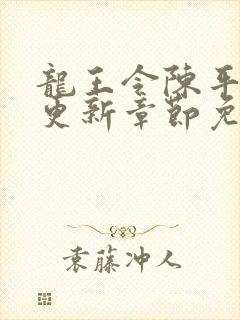 龍王令陳平
更新章節免
袁藤冲人